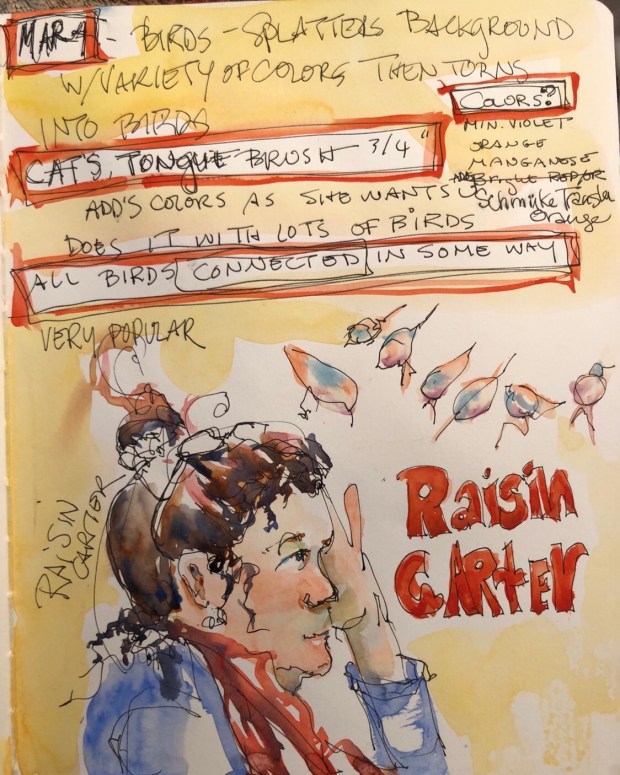 MARA - BIRDS - SPLATTERS BACKGROUND
W/VARIETY OF COLORS THEN TURNS
INTO BIRDS
COLORS?
MIN. VIOLET
ORANGE
MANGANESE
CAT'S TONGUE BRUSH 3/4"
ADD'S COLORS AS SHE WANTS
Orange
DOES IT WITH LOTS OF BIRDS
ALL BIRDS CONNECTED IN SOME WAY
VERY POPULAR
RAISIN
CARTER
Raisin
CARter